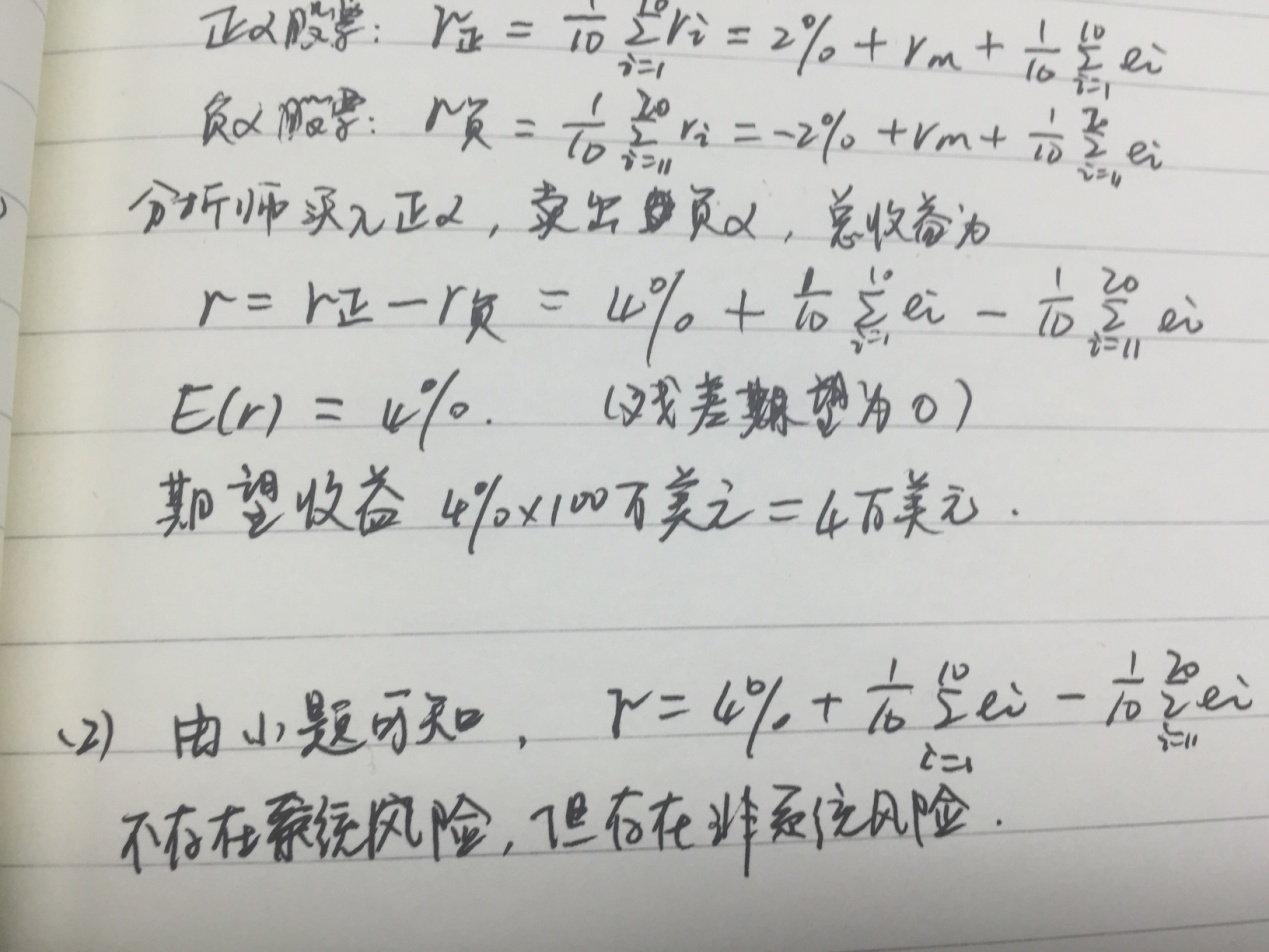 正α股票: r正 = 1/10 Σ(i=1→10) ri = 2% + rm + 1/10 Σ(i=1→10) ei
负α股票: r负 = 1/10 Σ(i=11→20) ri = -2% + rm + 1/10 Σ(i=11→20) ei
分析师买入正α, 卖出负α, 总收益为
r = r正 - r负 = 4% + 1/10 Σ(i=1→10) ei - 1/10 Σ(i=11→20) ei
E(r) = 4%. (残差期望为0)
期望收益 4%×100万美元 = 4万美元.
(2) 由小题可知, r = 4% + 1/10 Σ(i=1→10) ei - 1/10 Σ(i=11→20) ei
不存在系统风险, 但存在非系统风险.